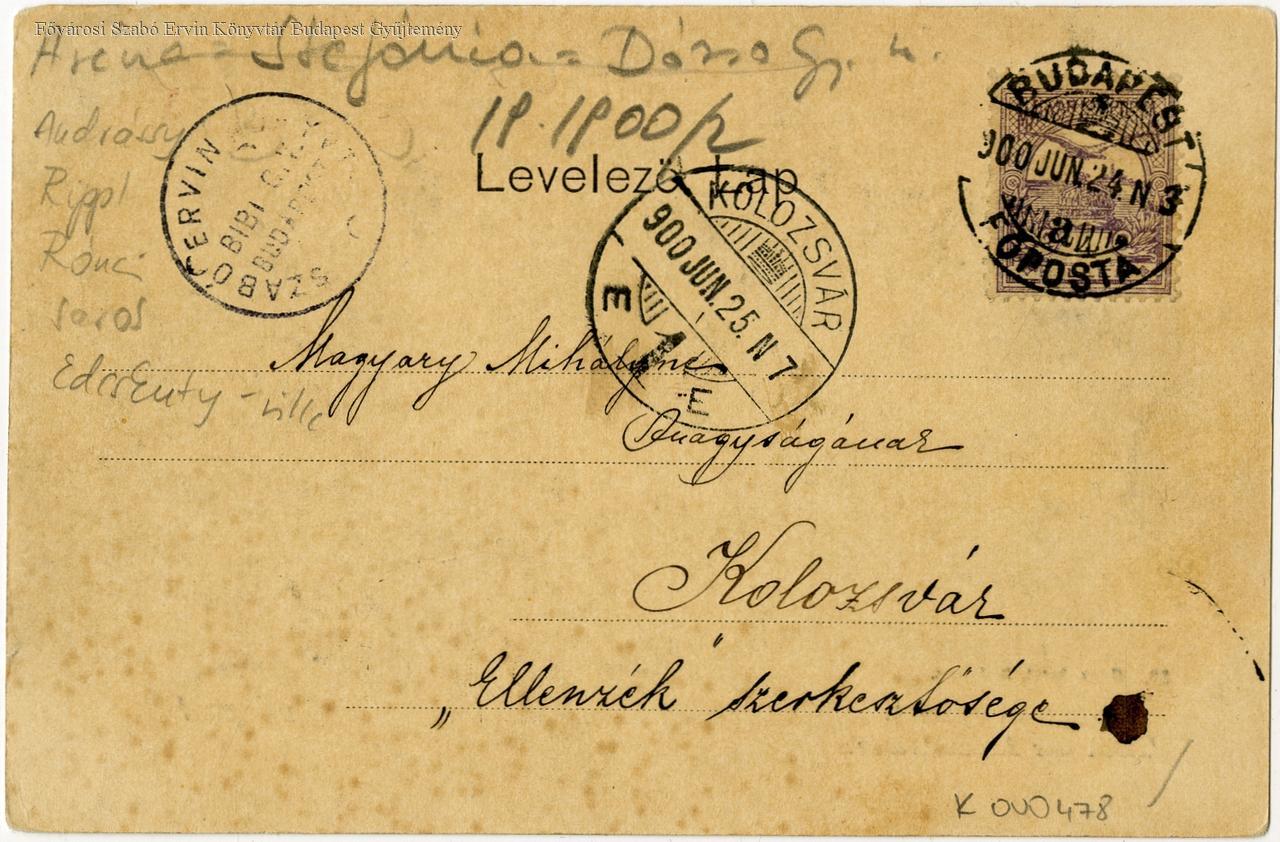 Fővárosi Szabó Ervin Könyvtár Budapest Gyűjtemény
Aréna = Stefánia = Dózsa Gy. u.
19.1900/2
Andrássy
Rippl
Rónai
saros
SZABÓ ERVIN
BIBL. CIV.
BUDAPEST
Levelező Lap
KOLOZSVÁR
900 JUN. 25. N 7
E 1 E
BUDAPEST
900 JUN. 24. N 3
a
FŐPOSTA
Magyary Mihályné
Őnagyságának
Kolozsvár
„Ellenzék" szerkesztősége
K 000478